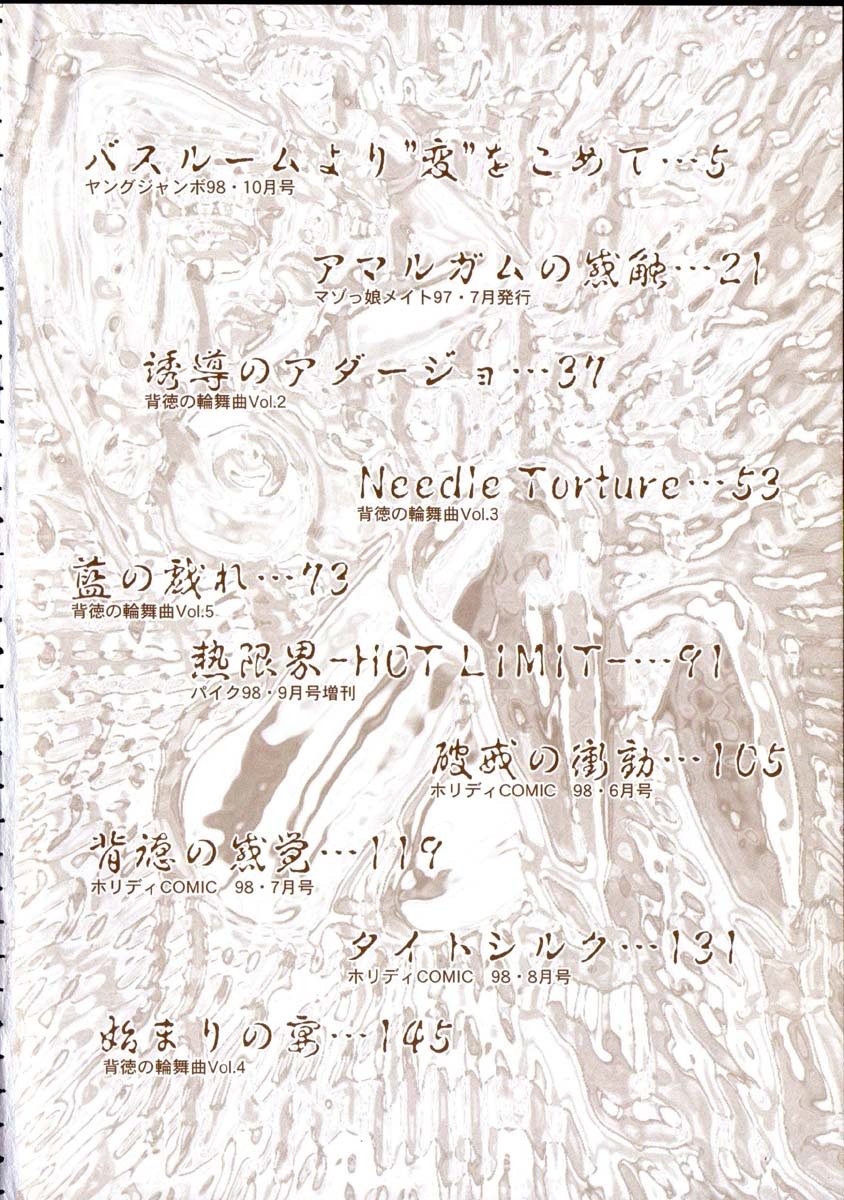 バスルームより"変"をこめて…5
ヤングジャンボ98・10月号
アマルガムの感触…21
マゾっ娘メイト97・7月発行
誘導のアダージョ…37
背徳の輪舞曲Vol.2
Needle Torture…53
背徳の輪舞曲Vol.3
藍の戯れ…73
背徳の輪舞曲Vol.5
熱限界-HOT LiMiT-…91
パイク98・9月号増刊
破戒の衝動…105
ホリディCOMIC 98・6月号
背徳の感覚…119
ホリディCOMIC 98・7月号
タイトシルク…131
ホリディCOMIC 98・8月号
始まりの宴…145
背徳の輪舞曲Vol.4